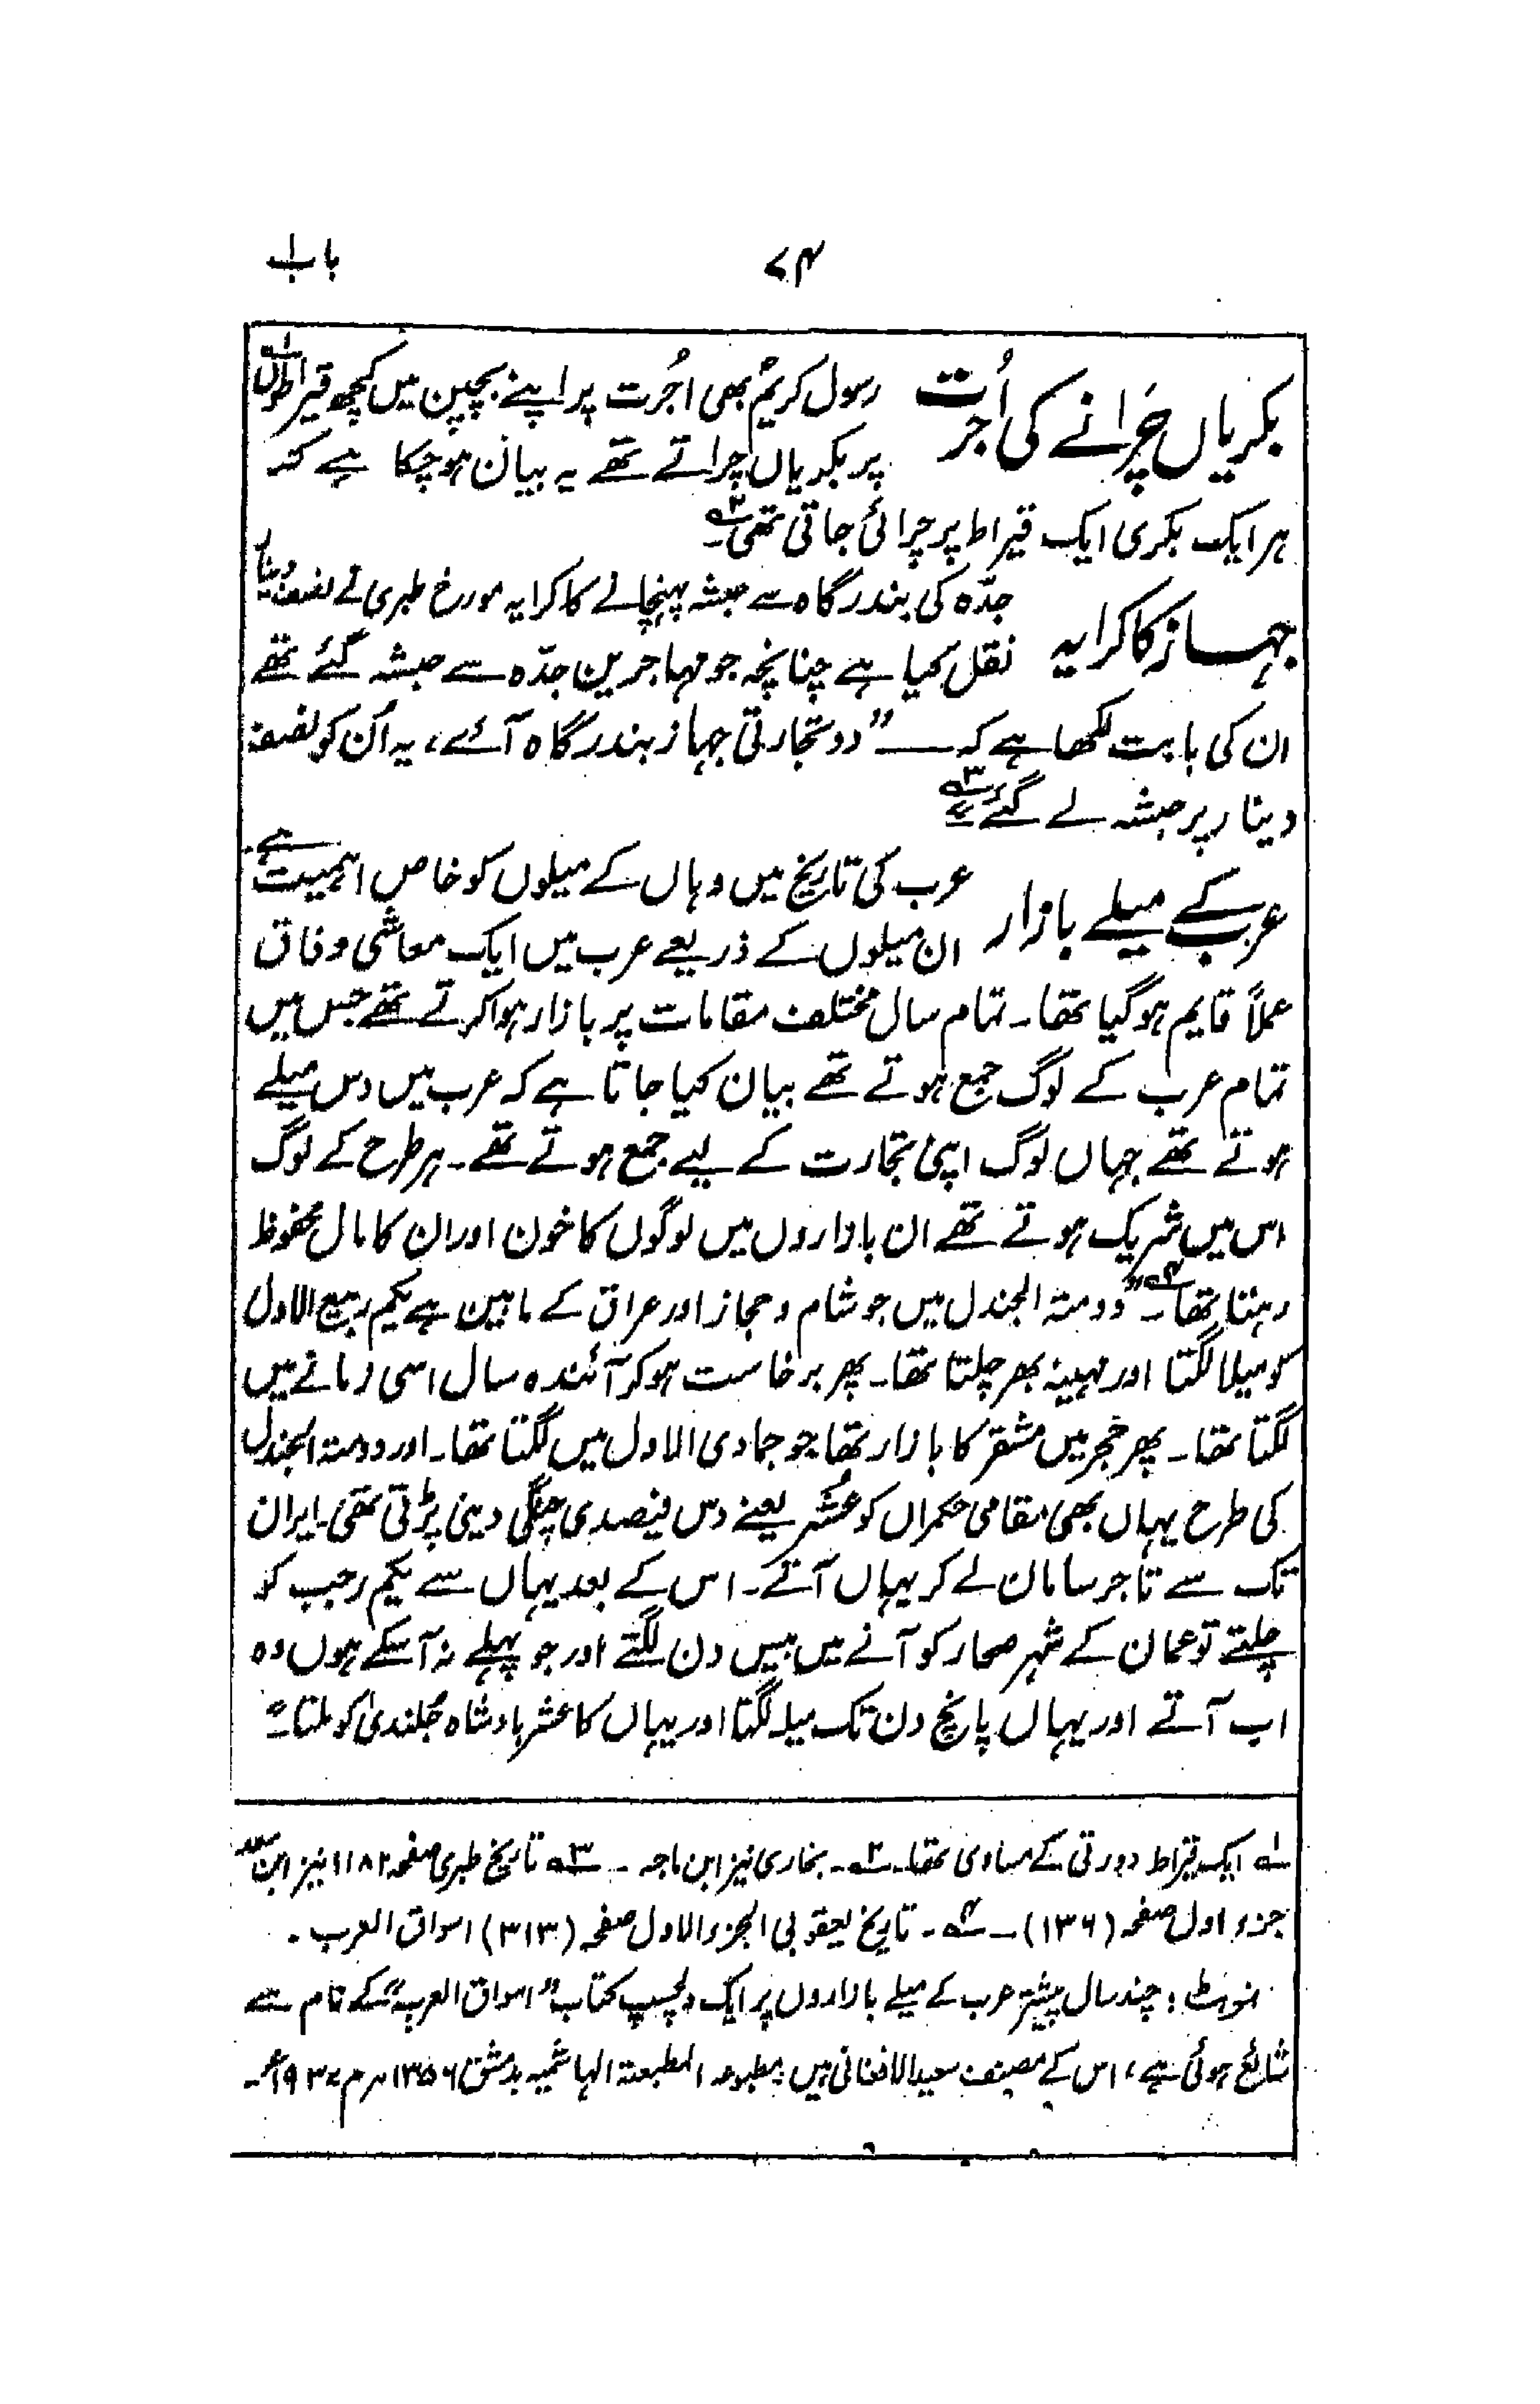 باب ۱
۷۴
بکریاں چَرانے کی اُجرت
رسول کریمؐ بھی اجُرت پر اپنے بچپن میں کچھ قیراطوں۱؎
پر بکریاں چراتے تھے یہ بیان ہوچکا ہے کہ
ہر ایک بکری ایک قیراط پر چرائی جاتی تھی۲؎۔
جہاز کا کرایہ
جدّہ کی بندرگاہ سے حبشہ پہنچانے کا کرایہ مورخ طبری نے نصف دینار
نقل کیا ہے چنانچہ جو مہاجرین جدّہ سے حبشہ گئے تھے
ان کی بابت لکھا ہے کہ ــــ "دو تجارتی جہاز بندرگاہ آئے، یہ اُن کو نصف
دینار پر حبشہ لے گئے"۳؎
عرب کے میلے بازار
عرب کی تاریخ میں وہاں کے میلوں کو خاص اہمیت ہے۔
ان میلوں کے ذریعے عرب میں ایک معاشی وفاق
عملاً قایم ہوگیا تھا۔ تمام سال مختلف مقامات پر بازار ہوا کرتے تھے جس میں
تمام عرب کے لوگ جمع ہوتے تھے بیان کیا جاتا ہے کہ عرب میں دس میلے
ہوتے تھے جہاں لوگ اپنی تجارت کے لیے جمع ہوتے تھے۔ ہر طرح کے لوگ
اس میں شریک ہوتے تھے ان بازاروں میں لوگوں کا خون اور ان کا مال محفوظ
رہتا تھا۔۴؎ "دومتہ الجندل میں جو شام و حجاز اور عراق کے مابین ہے یکم ربیع الاول
کو میلا لگتا اور مہینہ بھر چلتا تھا۔ پھر برخاست ہوکر آئندہ سال اسی زمانے میں
لگتا تھا۔ پھر ہجر میں مشقر کا بازار تھا جو جمادی الاول میں لگتا تھا۔ اور دومتہ الجندل
کی طرح یہاں بھی مقامی حکمراں کو عُشُر یعنے دس فیصدی چنگی دینی پڑتی تھی۔ ایران
تک سے تاجر سامان لے کر یہاں آتے۔ اس کے بعد یہاں سے یکم رجب کو
چلتے تو عمان کے شہر صحار کو آنے میں بیس دن لگتے اور جو پہلے نہ آسکے ہوں وہ
اب آتے اور یہاں پانچ دن تک میلہ لگتا اور یہاں کا عشر بادشاہ جُلندیٰ کو ملتا۔"
۱؎ ایک قیراط دو رتی کے مساوی تھا۔ ۲؎۔ بخاری نیز ابن ماجہ ۔ ۳؎ تاریخ طبری صفحہ ۱۱۸۲ نیز ابن سعد
جزء اول صفحہ (۱۳۶)۔ ۴؎۔ تاریخ یعقوبی الجزء الاول صفحہ (۳۱۳) اسواق العرب۔
نوٹ : چند سال پیشتر عرب کے میلے بازاروں پر ایک دلچسپ کتاب "اسواق العرب" کے نام سے
شائع ہوئی ہے، اس کے مصنف سعید الافغانی ہیں۔ مطبوعہ المطبعتہ الہاشمیہ بدمشق ۱۳۵۶ھ م ۱۹۳۷ء۔